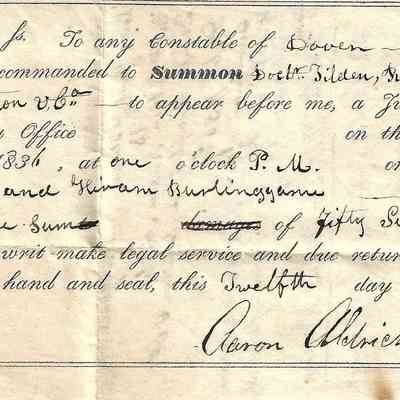 ss. To any Constable of Dover
commanded to Summon Doctr. Tilden,
& Co - to appear before me, a
Office on the
1836, at one o'clock P. M. on
and Hiram Burlinggame
Sum damages of Fifty
writ make legal service and due return
hand and seal, this Twelfth day
Aaron Aldrich